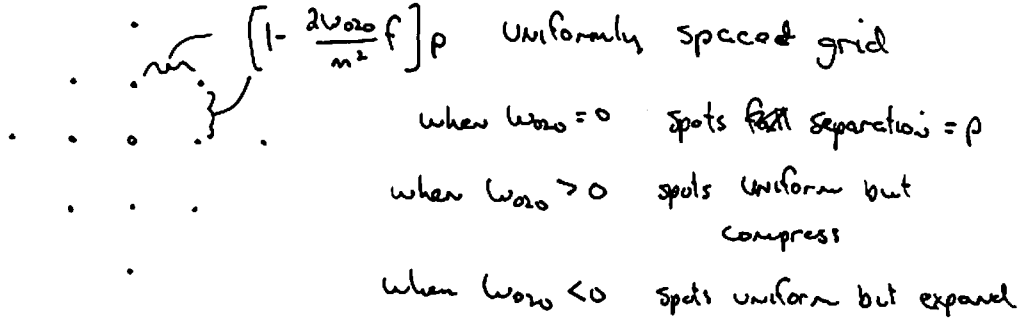 [1 - 2W₀₂₀/m² f] ρ uniformly spaced grid
when W₀₂₀ = 0 spots separation = ρ
when W₀₂₀ > 0 spots uniform but
compress
when W₀₂₀ < 0 spots uniform but expand